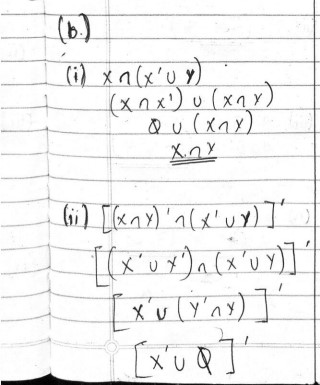 (b.)
(i) X ∩ (X' ∪ Y)
(X ∩ X') ∪ (X ∩ Y)
Ø ∪ (X ∩ Y)
X ∩ Y
(ii) [(X ∩ Y)' ∩ (X' ∪ Y)]'
[(X' ∪ Y') ∩ (X' ∪ Y)]'
[X' ∪ (Y' ∩ Y)]'
[X' ∪ Ø]'